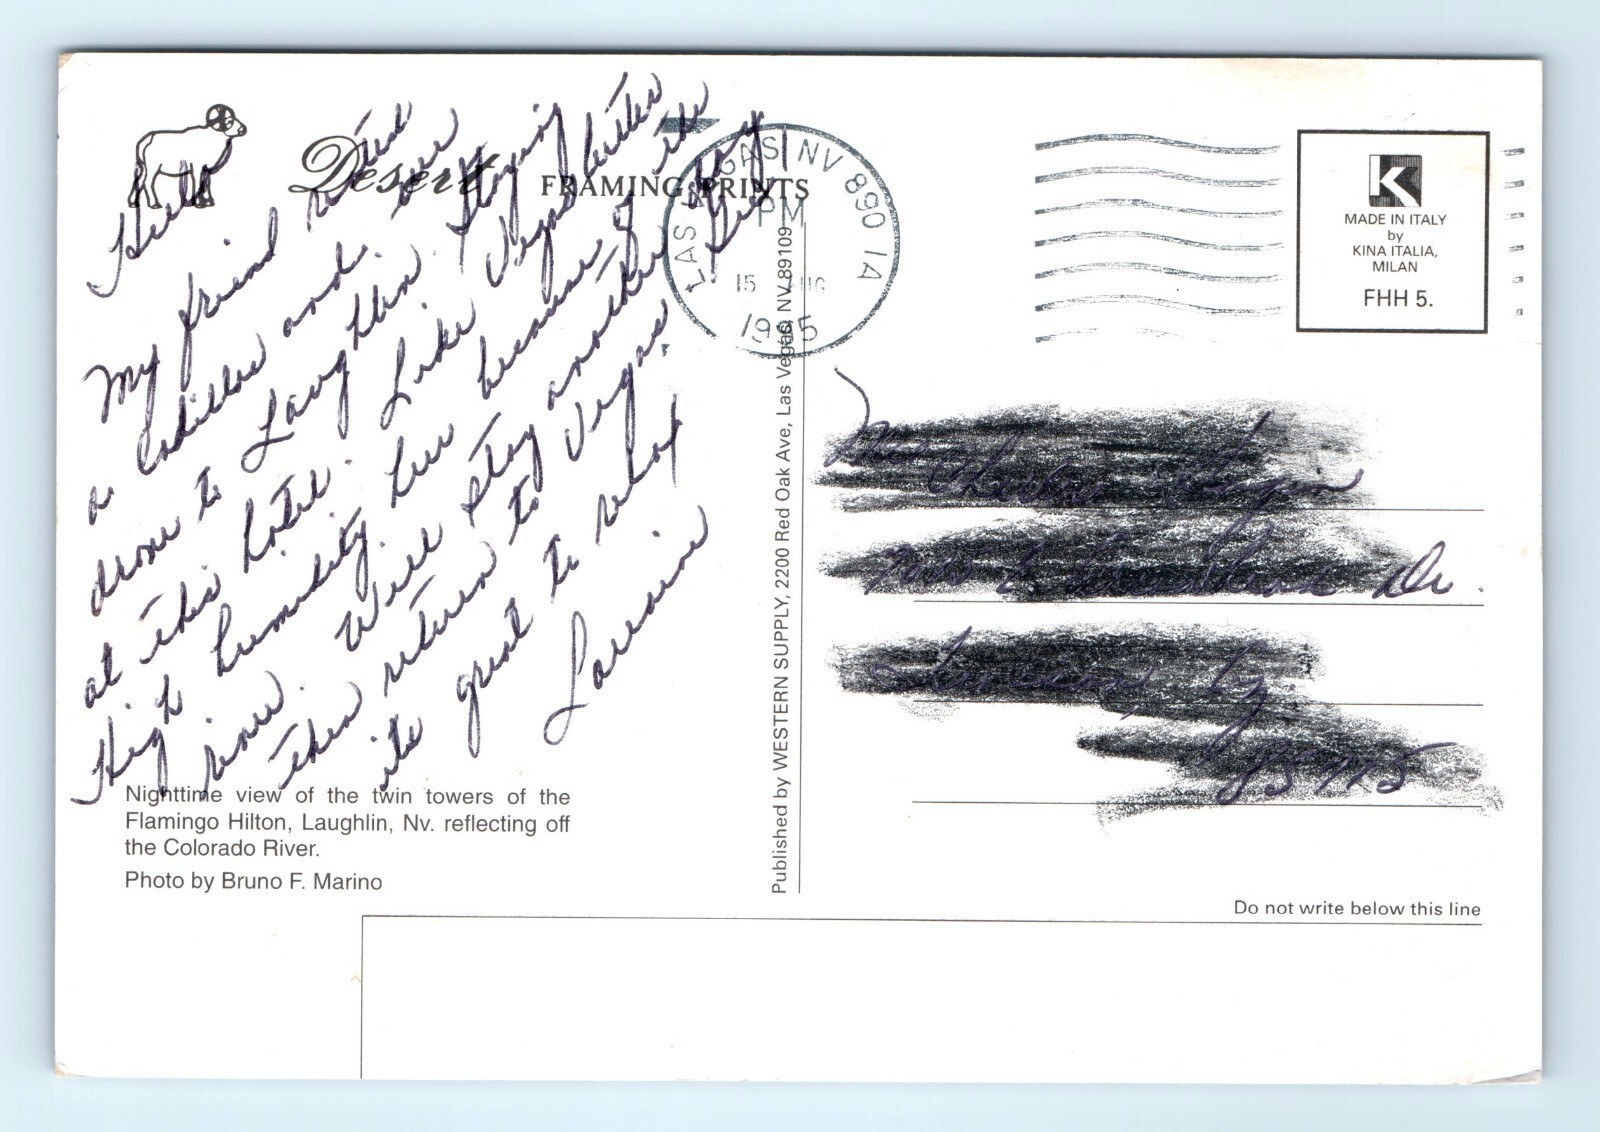 Desert FRAMING PRINTS
Hello
My friend rented
a Cadillac and we
drove to Laughlin. Staying
at this hotel. Like Vegas better
High humidity here because of the
river. Will stay another
then return to Vegas.
its great to relax
Lorraine
Nighttime view of the twin towers of the
Flamingo Hilton, Laughlin, Nv. reflecting off
the Colorado River.
Photo by Bruno F. Marino
Published by WESTERN SUPPLY, 2200 Red Oak Ave, Las Vegas, NV 89109
LAS VEGAS NV 890 1A
PM
15 AUG
1995
K
MADE IN ITALY
by
KINA ITALIA,
MILAN
FHH 5.
Do not write below this line